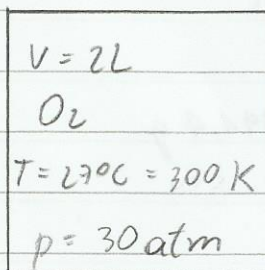 V = 2L
O₂
T = 27°C = 300 K
p = 30 atm